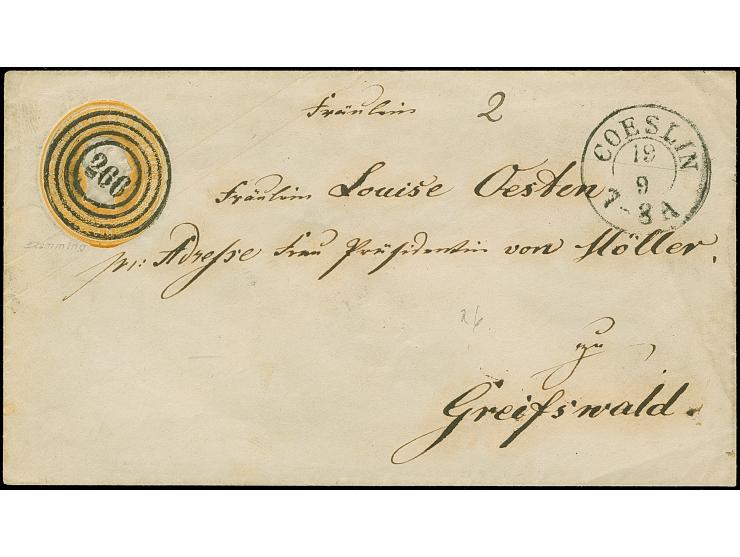 Fräulein 2
COESLIN
19
9
7-8 A
266
Fräulein Louise Oesten
pr: Adresse Frau Präsidentin von Möller.
zu
Greifswald.